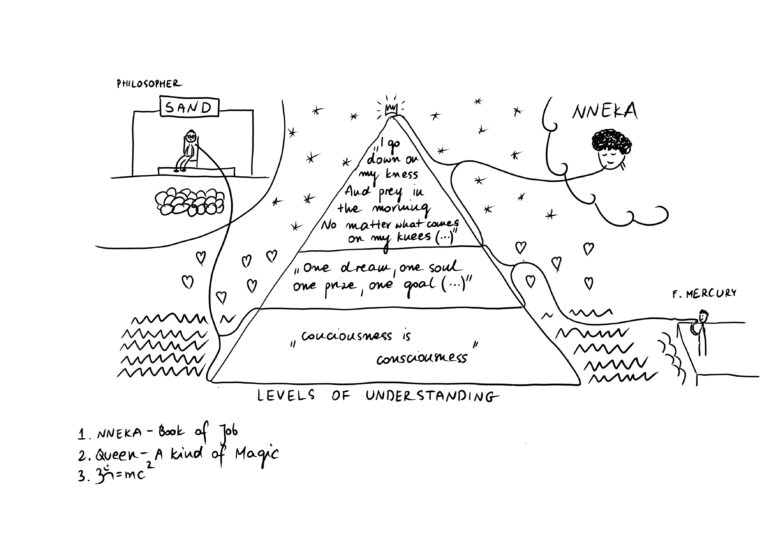 PHILOSOPHER
SAND
NNEKA
„I go
down on
my kness
And prey in
the morning
No matter what comes
on my knees (...)"
„One dream, one soul
one prize, one goal (...)"
F. MERCURY
„couciousness is
consciousness"
LEVELS OF UNDERSTANDING
1. NNEKA - Book of Job
2. Queen - A kind of Magic
3. ॐ=mc²